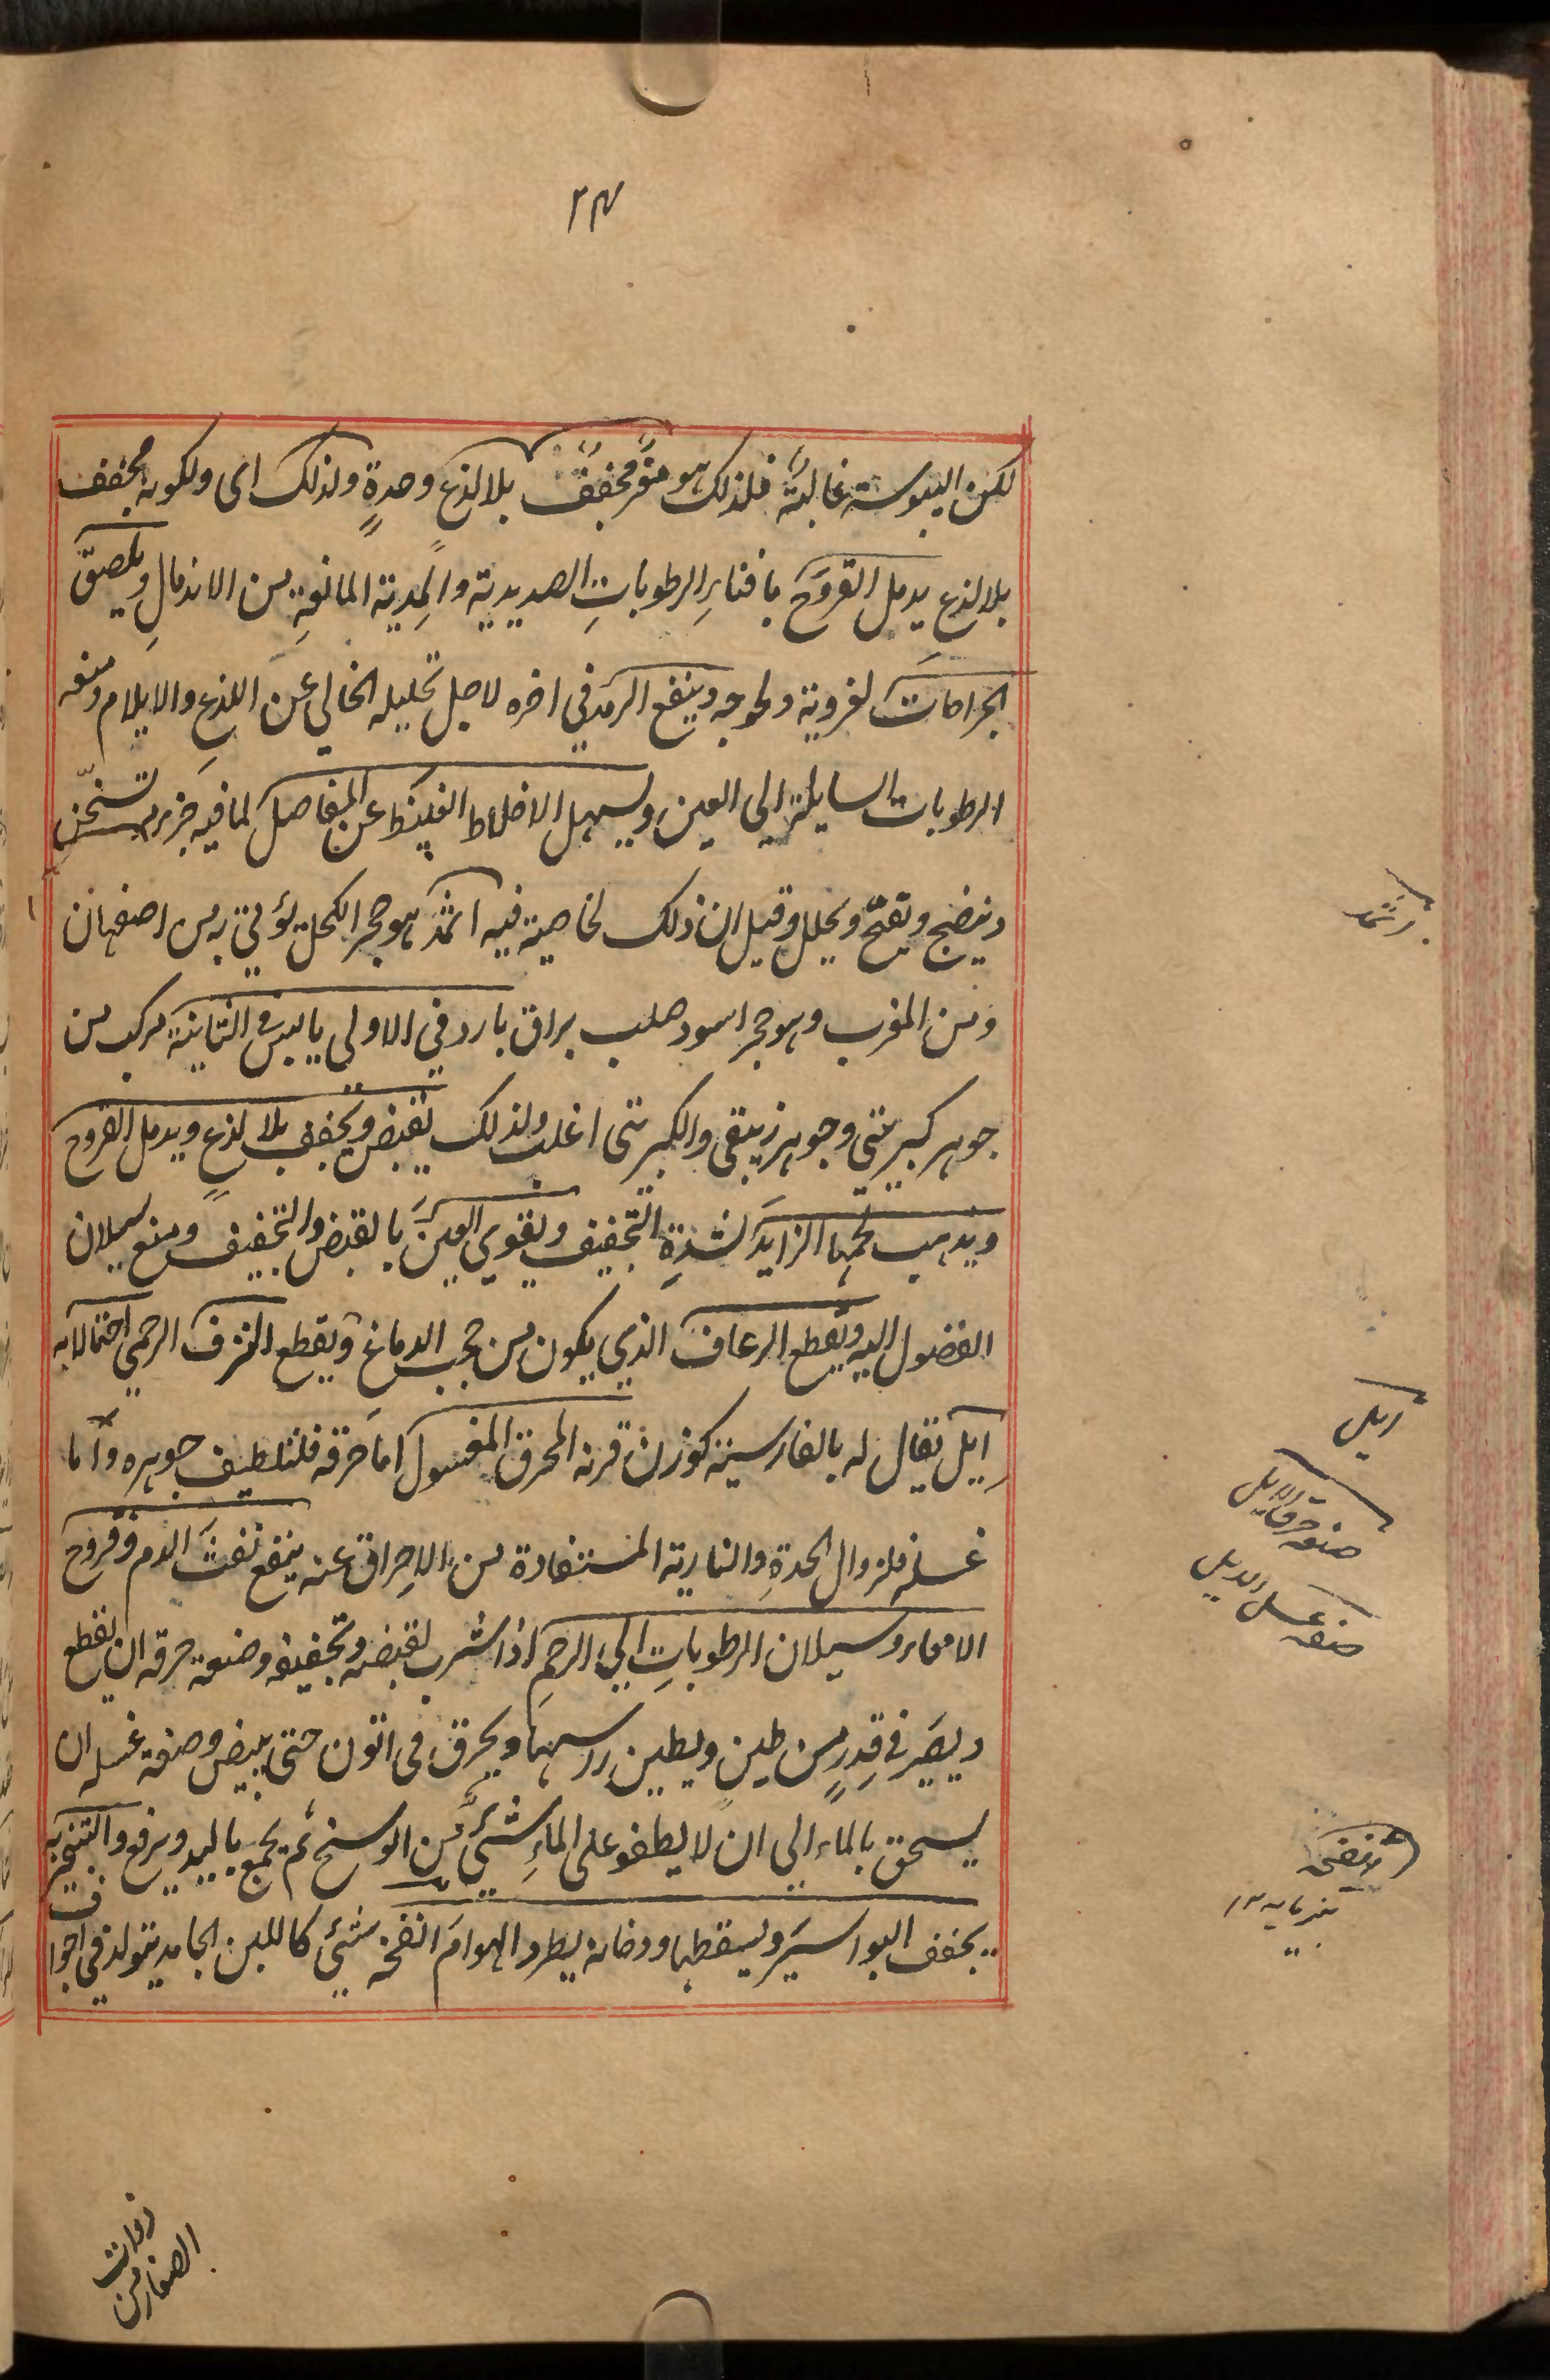 ٢٣
لكن اليبوسة غالبة فلذلك هو مغر مجفف بلا لذع وحدة ولذلك اى ولكونه مجفف
بلا لذع يدمل القروح بافناء الرطوبات الصديدية والمدية المانعة من الاندمال ويلصق
الجراحات لغرويته ولحوجه وينفع الرمد في اخره لاجل تحليله الخالي عن اللذع والايلام ومنعه
الرطوبات السايلة الى العين ويسهل الاخلاط الغليظ عن المفاصل لما فيه جزء يسخن
وينضج ويفتح ويحلل وقيل ان ذلك لخاصية فيه اثمد هو حجر الكحل يؤتي به من اصفهان
ومن المغرب وهو حجر اسود صلب براق بارد في الاولى يابس في الثانية مركب من
جوهر كبريتي وجوهر زيبقي والكبريتى اغلب ولذلك يقبض ويجفف بلا لذع ويدمل القروح
ويذهب لحمها الزايد لشدة التجفيف ويقوي العين بالقبض والتجفيف ومنع سيلان
الفضول اليه ويقطع الرعاف الذي يكون من حجب الدماغ ويقطع النزف الرحمي احتمالا به
ايل يقال له بالفارسية كوزن قرنه المحرق المغسول اما حرقه فلتلطيف جوهره واما
غسله فلزوال الحدة والنارية المستفادة من الاحراق عنه ينفع نفث الدم وقروح
الامعاء وسيلان الرطوبات الي الرحم اذا شرب لقبضه وتجفيفه وصنعة حرقه ان يقطع
ويصير في قدر من طين ويطين راسها ويحرق في اتون حتى يبيض وصنعة غسله ان
يسحق بالماء الي ان لا يطفو على الماء شيئ من الوسخ ثم يجمع باليد ويرفع والتبخير به
يجفف البواسير ويسقطها ودخانه يطرد الهوام انفحة شيئ كاللبن الجامد يتولد في اجواف
اثمد
ايل
صنعة حرق الايل
صنعة غسل الايل
انفحة
پنيرمايه ١٢
ذوات
الصغار من